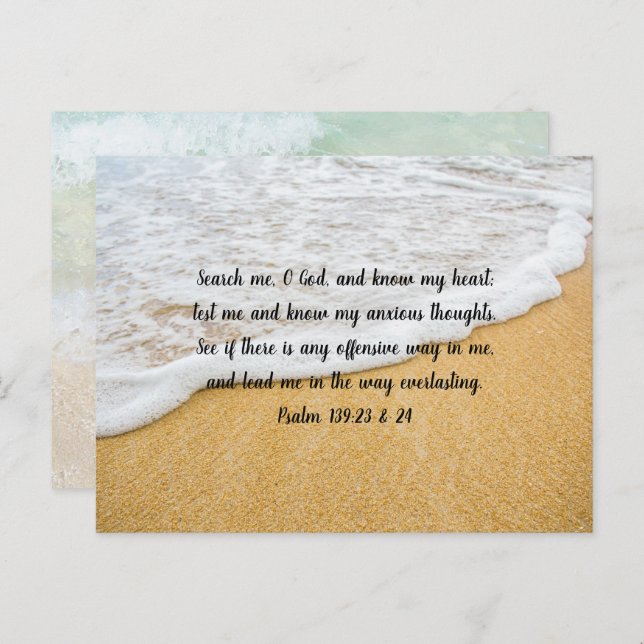 Search me, O God, and know my heart;
test me and know my anxious thoughts.
See if there is any offensive way in me,
and lead me in the way everlasting.
Psalm 139:23 & 24